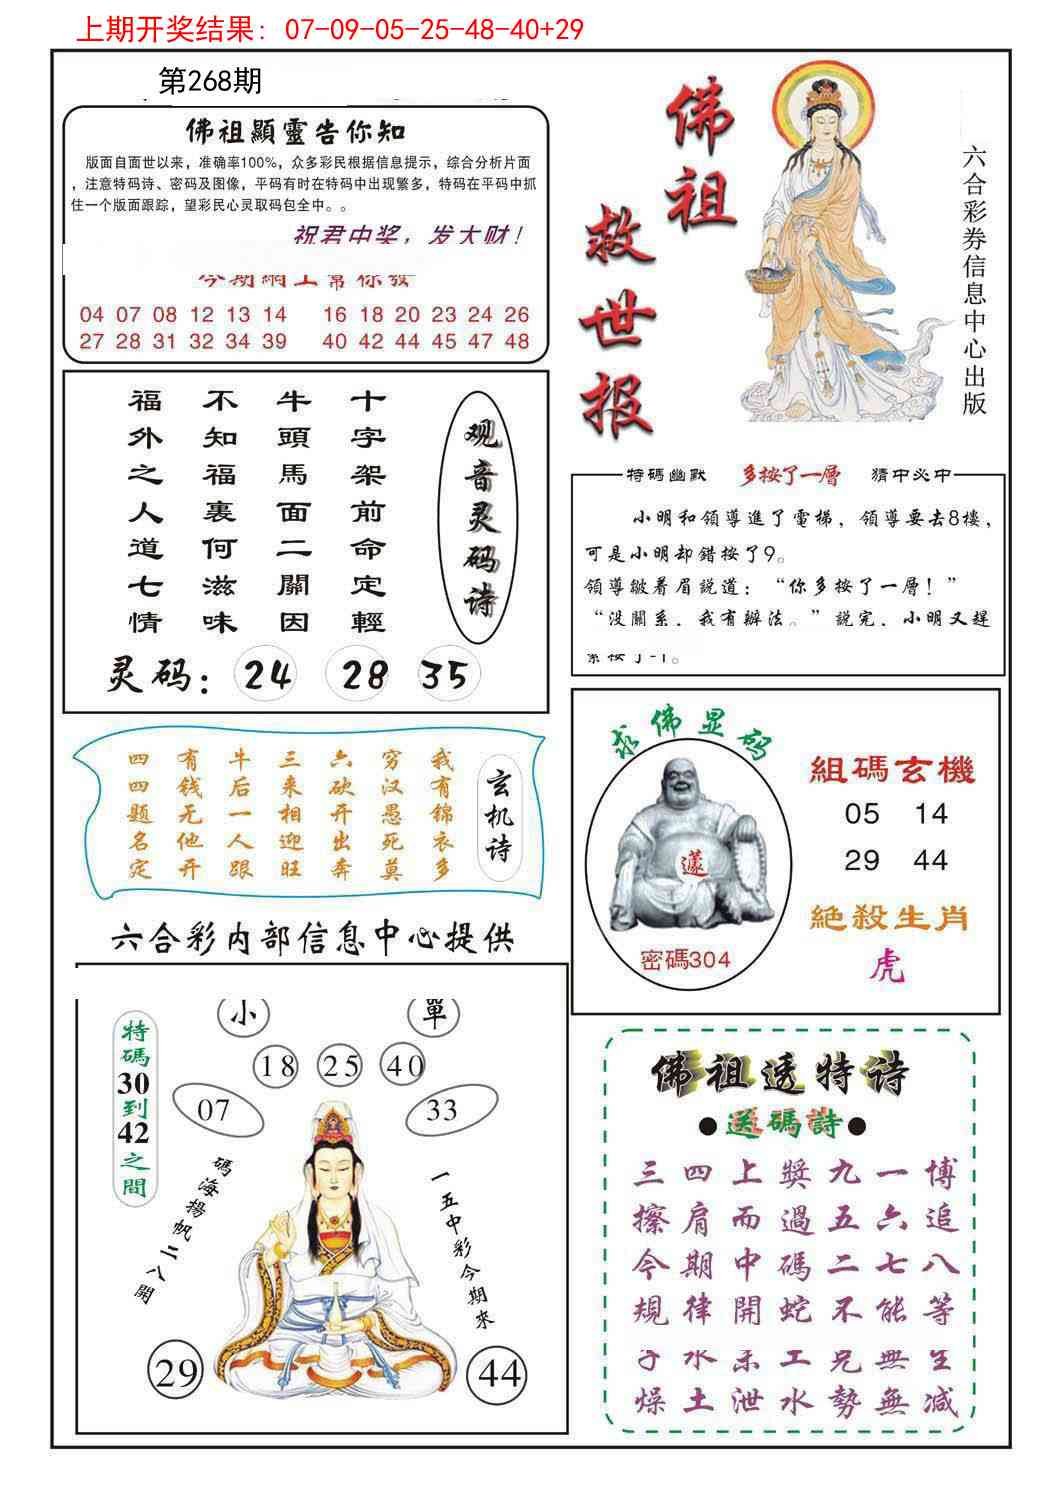 上期开奖结果：07-09-05-25-48-40+29
第268期
佛祖顯靈告你知
版面自面世以来，准确率100%，众多彩民根据信息提示，综合分析片面
，注意特码诗、密码及图像，平码有时在特码中出现繁多，特码在平码中抓
住一个版面跟踪，望彩民心灵取码包全中。。
祝君中奖，发大财！
04 07 08 12 13 14 16 18 20 23 24 26
27 28 31 32 34 39 40 42 44 45 47 48
佛祖
救世报
六合彩券信息中心出版
观音灵码诗
十字架前命定輕
牛頭馬面二關因
不知福裏何滋味
福外之人道七情
灵码：24 28 35
特碼幽默 多按了一層 猜中必中
小明和領導進了電梯，領導要去8樓，
可是小明却錯按了9。
領導皺着眉説道：“你多按了一層！”
“没關系，我有辦法。”説完，小明又趕
玄机诗
我有锦衣多
穷汉愚死莫
六砍开出奔
三来相迎旺
牛后一人跟
有钱无他开
四四题名定
求佛显码
密碼304
組碼玄機
05 14
29 44
絕殺生肖
虎
六合彩内部信息中心提供
特碼30到42之間
小 單
18 25 40
07 33
碼海揚帆二八開
一五中彩今期來
29 44
佛祖透特诗
●送碼詩●
三四上獎九一博
擦肩而過五六追
今期中碼二七八
規律開蛇不能等
燥土泄水勢無减